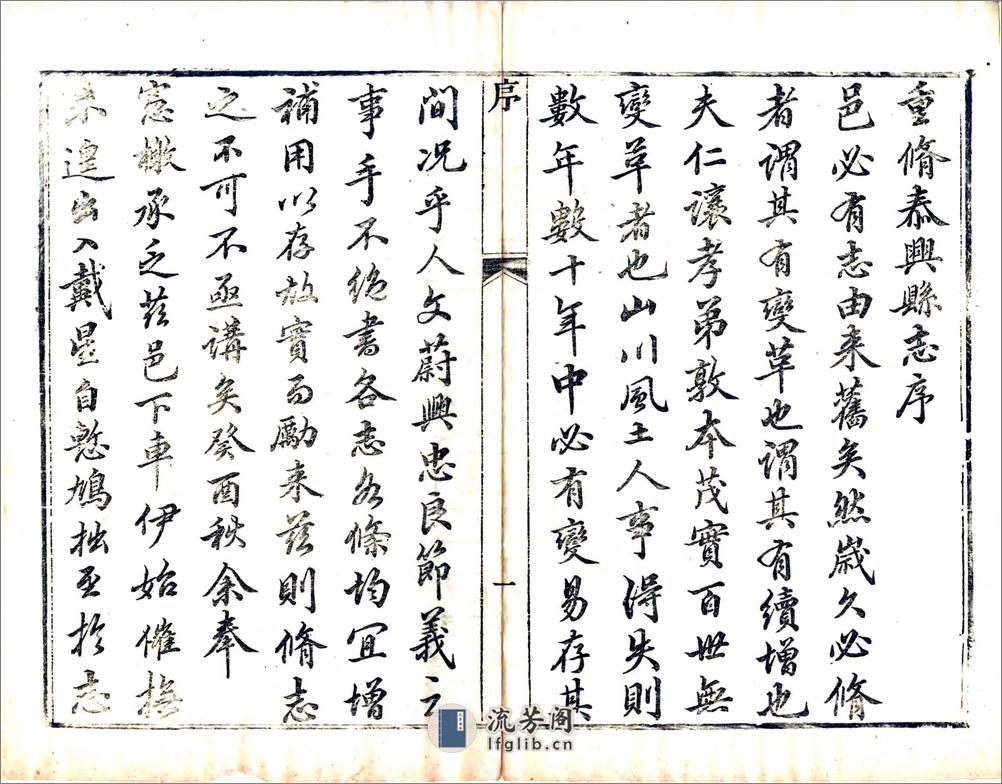 重脩泰興縣志序
邑必有志由来舊矣然歲久必脩
者謂其有變革也謂其有續增也
夫仁讓孝弟敦本茂實百世無
變革者也山川風土人事得失則
數年數十年中必有變易存其
序
一
間况乎人文蔚興忠良節義之
事手不絶書各志各條均宜增
補用以存故實而勵来茲則脩志
之不可不亟講矣癸酉秋余奉
憲檄承乏茲邑下車伊始催撫
未遑出入戴星自慙鳩拙至於志
流芳阁
lfglib.cn